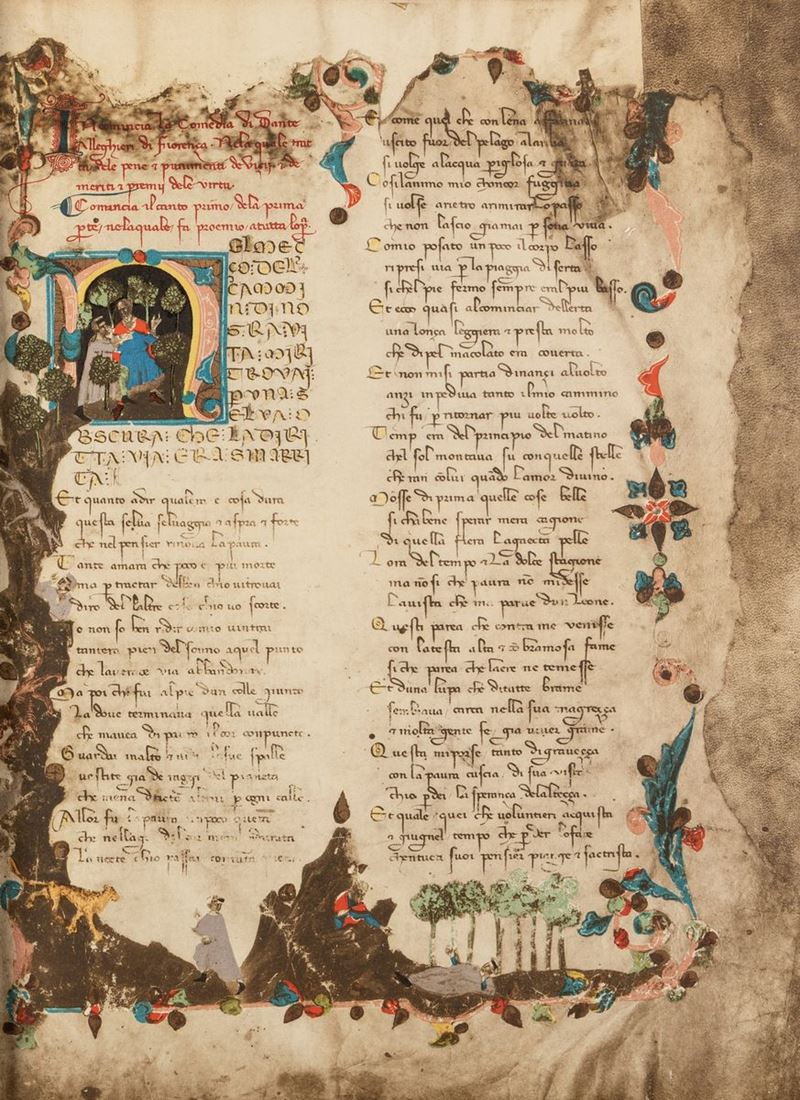 Incomincia la Comedia di Dante
Alleghieri di fiorença. Nela quale trat
ta dele pene et punimenti de viçii et de
meriti et premij dele virtu.
Comincia il canto primo dela prima
parte nelaquale fa proemio atutta lopa.
EL MEÇ
ÇO: DEL
CAMMI
N: DI NO
STRA VI
TA: MIRI
TROVAI
P VNA: S
ELVA: O
BSCURA: CHE LADIRI
TTA: VIA: ERA SMARRI
TA:
Et quanto adir qualera e cosa dura
questa selua seluaggia et aspra et forte
che nel pensier rinoua la paura.
Tante amara che poco e piu morte
ma p tractar del ben chio uitrouai
diro del laltre cose chio uo scorte.
Io non so ben ridir comio uintrai
tantera pien del sonno aquel punto
che la uerace via abbandonai.
Ma poi chi fui alpie dun colle giunto
La doue terminaua quella ualle
che mauea di paura il cor conpuncto.
Guardai inalto et uidi le sue spalle
uestite gia de raggi del pianeta
che mena dricto altrui p ogni calle.
Allor fu la paura unpoco queta
che nellago del cor mera durata
La nocte chio passai con tanta
E come quel che con lena affannata
uscito fuor del pelago alariua
si uolge alacqua pigliosa et guata
Cosi lanimo mio chancor fuggiua
si uolse arietro arimirar lo passo
che non lascio giamai p sona viua.
Comio posato un poco il corpo lasso
ripresi uia p la piaggia diserta
si chel pie fermo sempre eral piu basso.
Et ecco quasi alcominciar dellerta
una lonça leggiera et presta molto
che dipel macolato era couerta.
Et non misi partia dinançi aluolto
ançi inpediua tanto ilmio cammino
chi fu p ritornar piu uolte uolto.
Temp era del principio del matino
el sol montaua su con quelle stelle
che ran con lui quado lamor diuino.
Mosse di prima quelle cose belle
si cha bene sperar mera cagione
di quella fiera lagaecta pelle
Lora del tempo et la dolce stagione
ma no si che paura no midesse
la uista che ma parue dun leone.
Questi parea che contra me uenisse
con latesta alta et co bramosa fame
si che parea che laere ne temesse
Et duna lupa che ditutte brame
sembiaua carca nella sua magreçça
et molta gente fe gia uiuer grame.
Questa miporse tanto di graueçça
con la paura cuscia di sua uista
chio perdei la sperança delalteçça.
Et quale quei che uoluntieri acquista
et giugnel tempo che p der lo face
chentucti suoi pensier piange et sactrista.